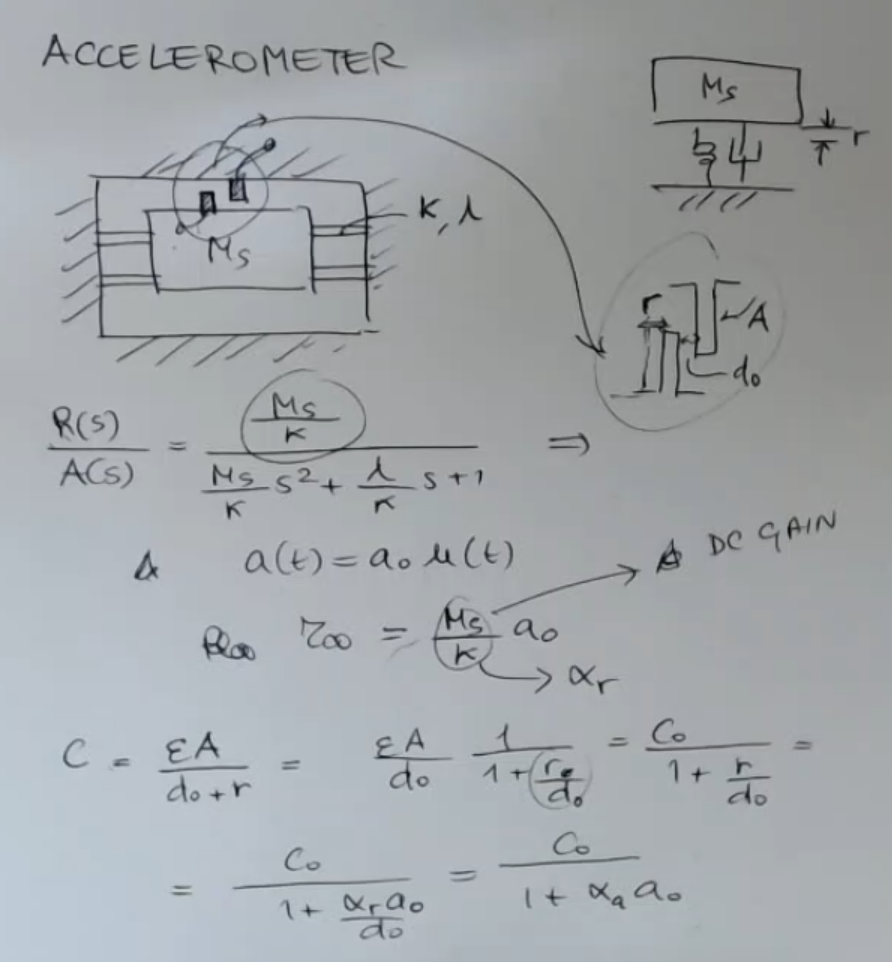 ACCELEROMETER
Ms
r
K, λ
Ms
r
A
d₀
R(s)/A(s) = (Ms/K) / (Ms/K s² + λ/K s + 1) ⇒
a(t) = a₀ μ(t)
DC GAIN
r∞ = Ms/K a₀
αr
C = εA/(d₀ + r) = εA/d₀ 1/(1 + r/d₀) = C₀/(1 + r/d₀) =
= C₀/(1 + αr a₀/d₀) = C₀/(1 + αa a₀)